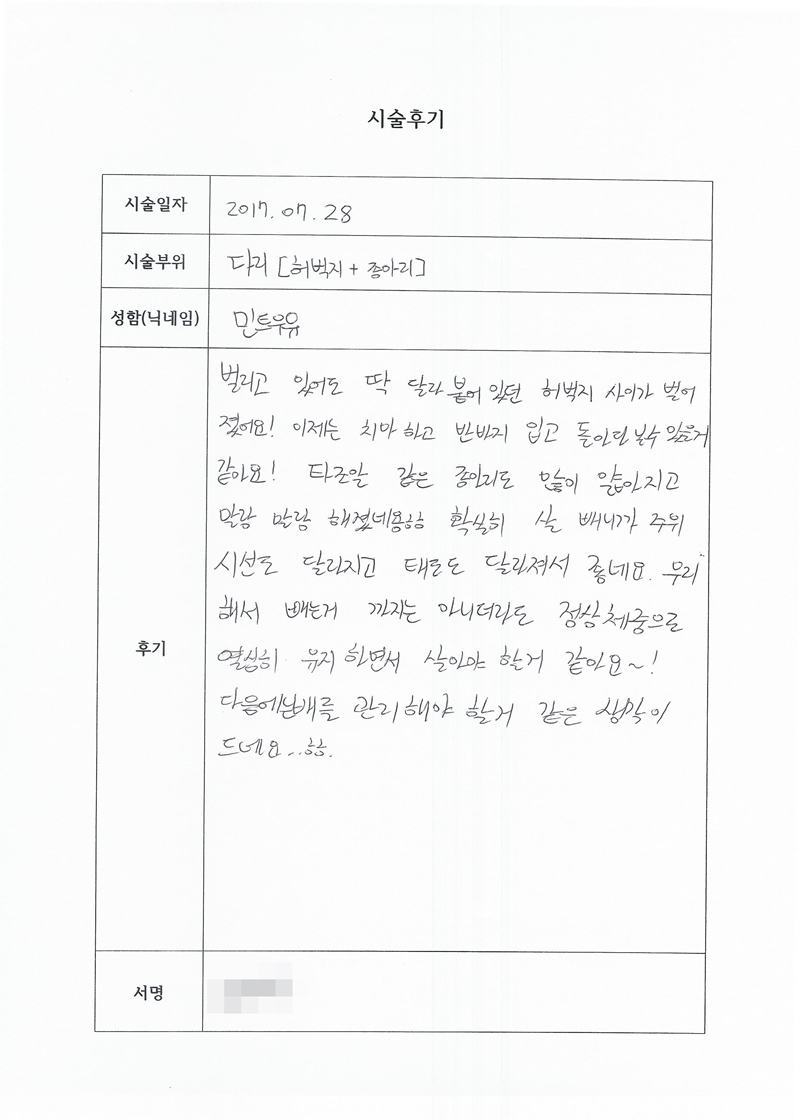 시술후기
시술일자 2017. 07. 28
시술부위 다리 [허벅지 + 종아리]
성함(닉네임) 민트우유
벌리고 있어도 딱 달라 붙어 있던 허벅지 사이가 벌어
졌어요! 이제는 치마 하고 반바지 입고 돌아던 볼수 있을거
같아요! 타조알 같은 종아리도 많이 얇아지고
말랑 말랑 해졌네용ㅎㅎ 확실히 살 빼니까 주위
시선도 달라지고 태도도 달라져서 좋네요. 무리
해서 빼는거 까지는 아니더라도 정상체중으로
후기
열심히 유지 하면서 살아야 할거 같아요~!
다음에 배를 관리해야 할거 같은 생각이
드네요..ㅎㅎ.
서명